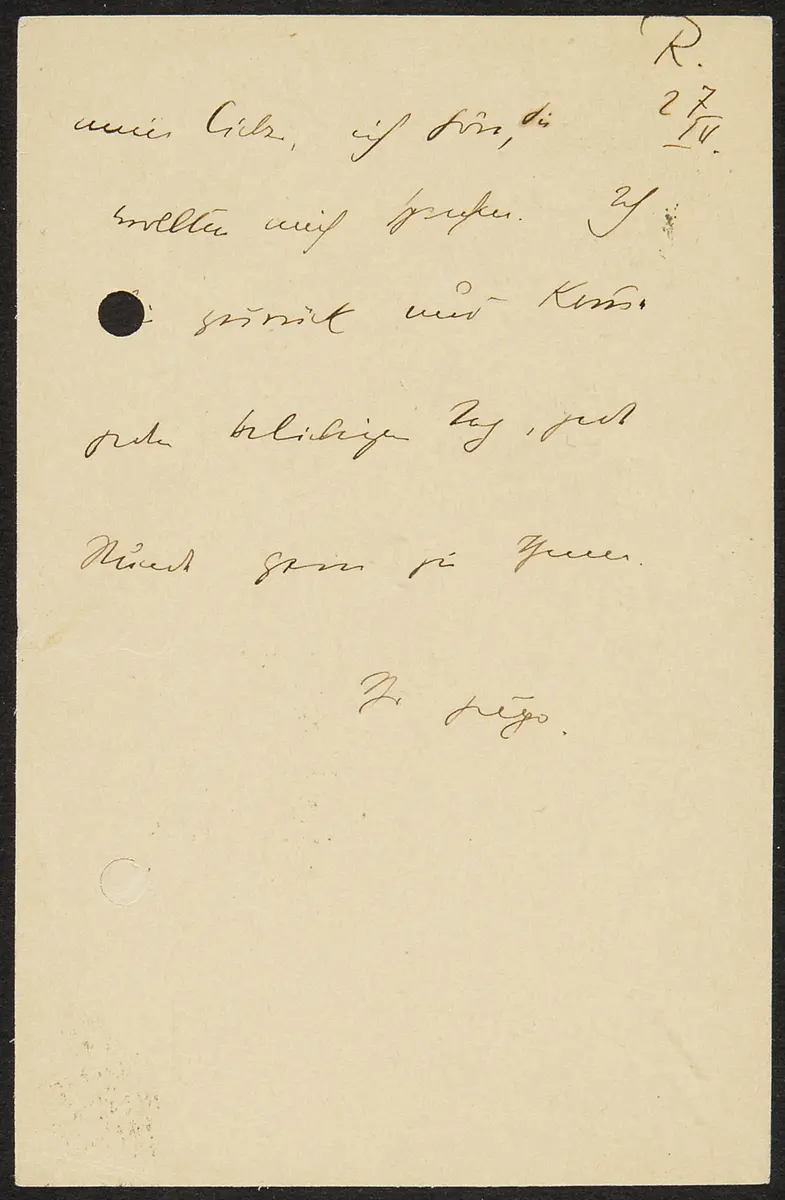 R.
27
IV.
mein Lieber, ich höre, Sie
wollten mich sprechen. Ich
bin zurück und komme
jeden beliebigen Tag, jede
Stunde gern zu Ihnen.
Ihr Hugo.